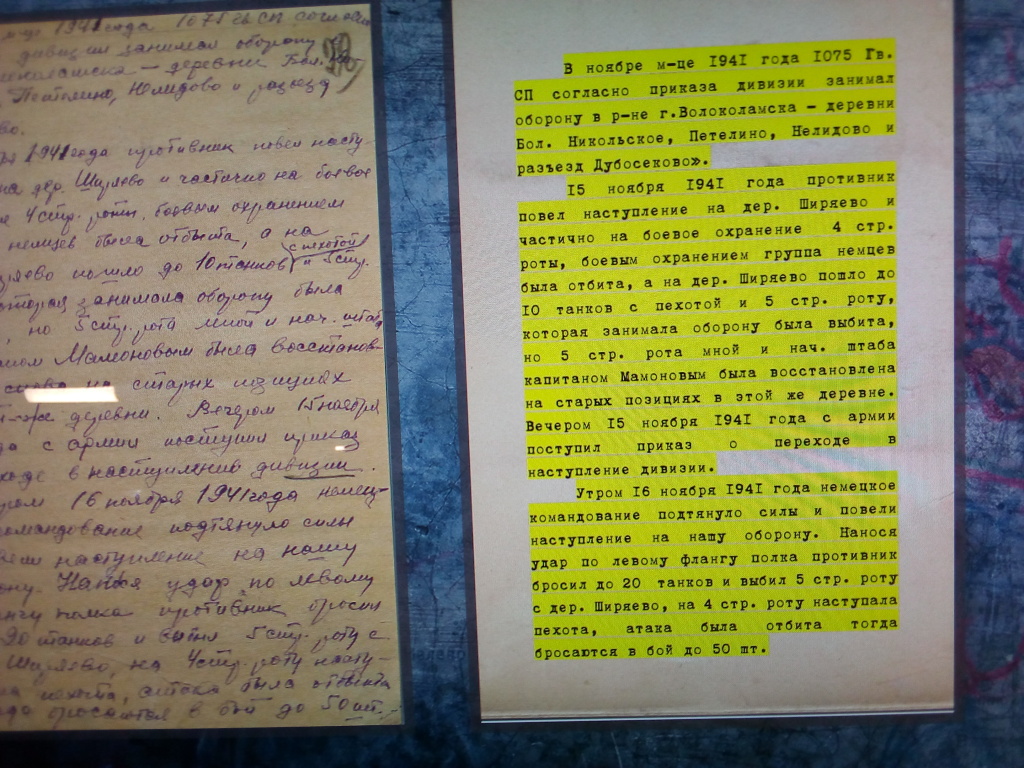 м-це 1941 года 1075 Гв СП согласно
дивизии занимал оборону
деревни Бол.
Петелино, Нелидово и разъезд
во.
1941 года противник повел насту-
на дер. Ширяево и частично на боевое
4 стр. роты, боевым охранением
немцев была отбита, а на
с пехотой
пошло до 10 танков и 5 стр.
которая занимала оборону была
но 5 стр. рота мной и нач. штаба
Мамоновым была восстанов-
на старых позициях
же деревни. Вечером 15 ноября
с армии поступил приказ
в наступление дивизии.
16 ноября 1941 года немец-
командование подтянуло силы
наступление на нашу
Нанося удар по левому
полка противник бросил
20 танков и выбил 5 стр. роту с
Ширяево, на 4 стр. роту насту-
пехота, атака была отбита
бросаются в бой до 50 шт.
В ноябре м-це 1941 года 1075 Гв.
СП согласно приказа дивизии занимал
оборону в р-не г.Волоколамска – деревни
Бол. Никольское, Петелино, Нелидово и
разъезд Дубосеково».
15 ноября 1941 года противник
повел наступление на дер. Ширяево и
частично на боевое охранение 4 стр.
роты, боевым охранением группа немцев
была отбита, а на дер. Ширяево пошло до
10 танков с пехотой и 5 стр. роту,
которая занимала оборону была выбита,
но 5 стр. рота мной и нач. штаба
капитаном Мамоновым была восстановлена
на старых позициях в этой же деревне.
Вечером 15 ноября 1941 года с армии
поступил приказ о переходе в
наступление дивизии.
Утром 16 ноября 1941 года немецкое
командование подтянуло силы и повели
наступление на нашу оборону. Нанося
удар по левому флангу полка противник
бросил до 20 танков и выбил 5 стр. роту
с дер. Ширяево, на 4 стр. роту наступала
пехота, атака была отбита тогда
бросаются в бой до 50 шт.